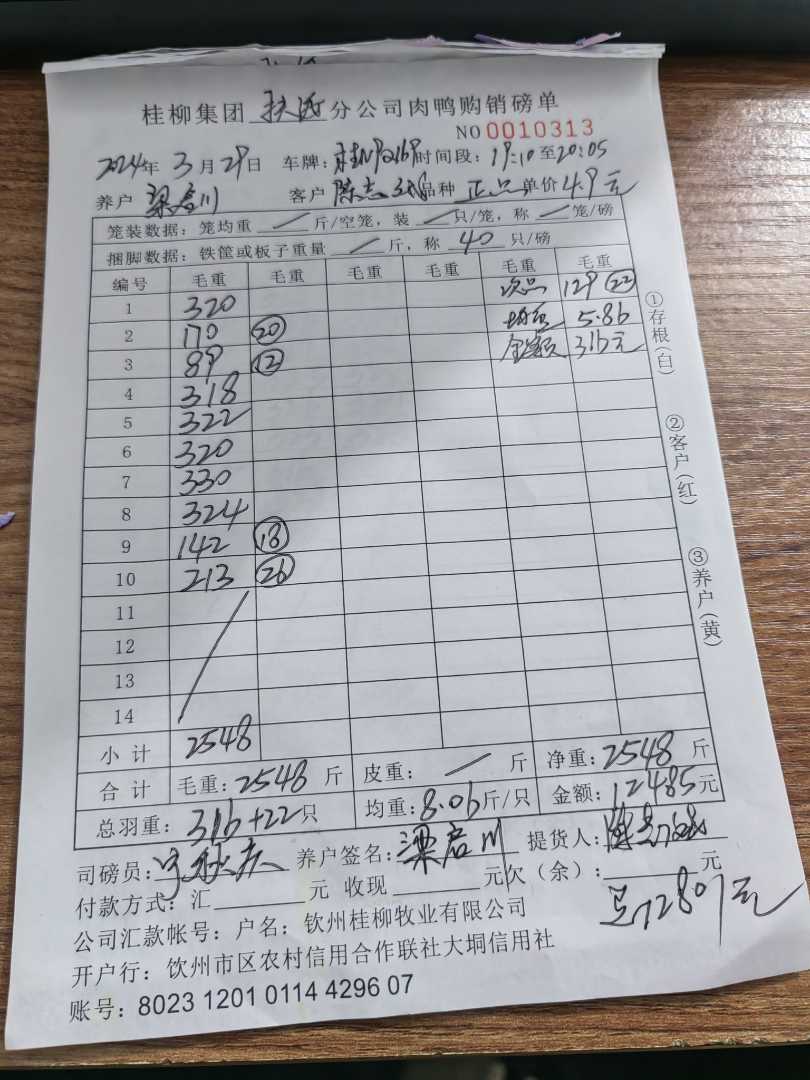 桂柳集团 分公司肉鸭购销磅单
NO 0010313
2024年 3月29日 车牌: 时间段: 19:10至20:05
养户 梁启川 客户 陈志 品种 正品 单价 4.9元
笼装数据: 笼均重 / 斤/空笼, 装 / 只/笼, 称 / 笼/磅
捆脚数据: 铁筐或板子重量 / 斤, 称 40 只/磅
编号 毛重 毛重 毛重 毛重 毛重 毛重
1 320 次品 129 22
2 170 20 均重 5.86
3 89 12 金额 316元
4 318
5 322
6 320
7 330
8 324
9 142 18
10 213 26
11
12
13
14
小计 2548
合计 毛重: 2548 斤 皮重: / 斤 净重: 2548 斤
总羽重: 316+22只 均重: 8.06斤/只 金额: 12485元
司磅员: 养户签名: 梁启川 提货人:
付款方式: 汇 元 收现 元 欠(余): 元
12801元
公司汇款帐号: 户名: 钦州桂柳牧业有限公司
开户行: 钦州市区农村信用合作联社大垌信用社
账号: 8023 1201 0114 4296 07
①存根(白)
②客户(红)
③养户(黄)